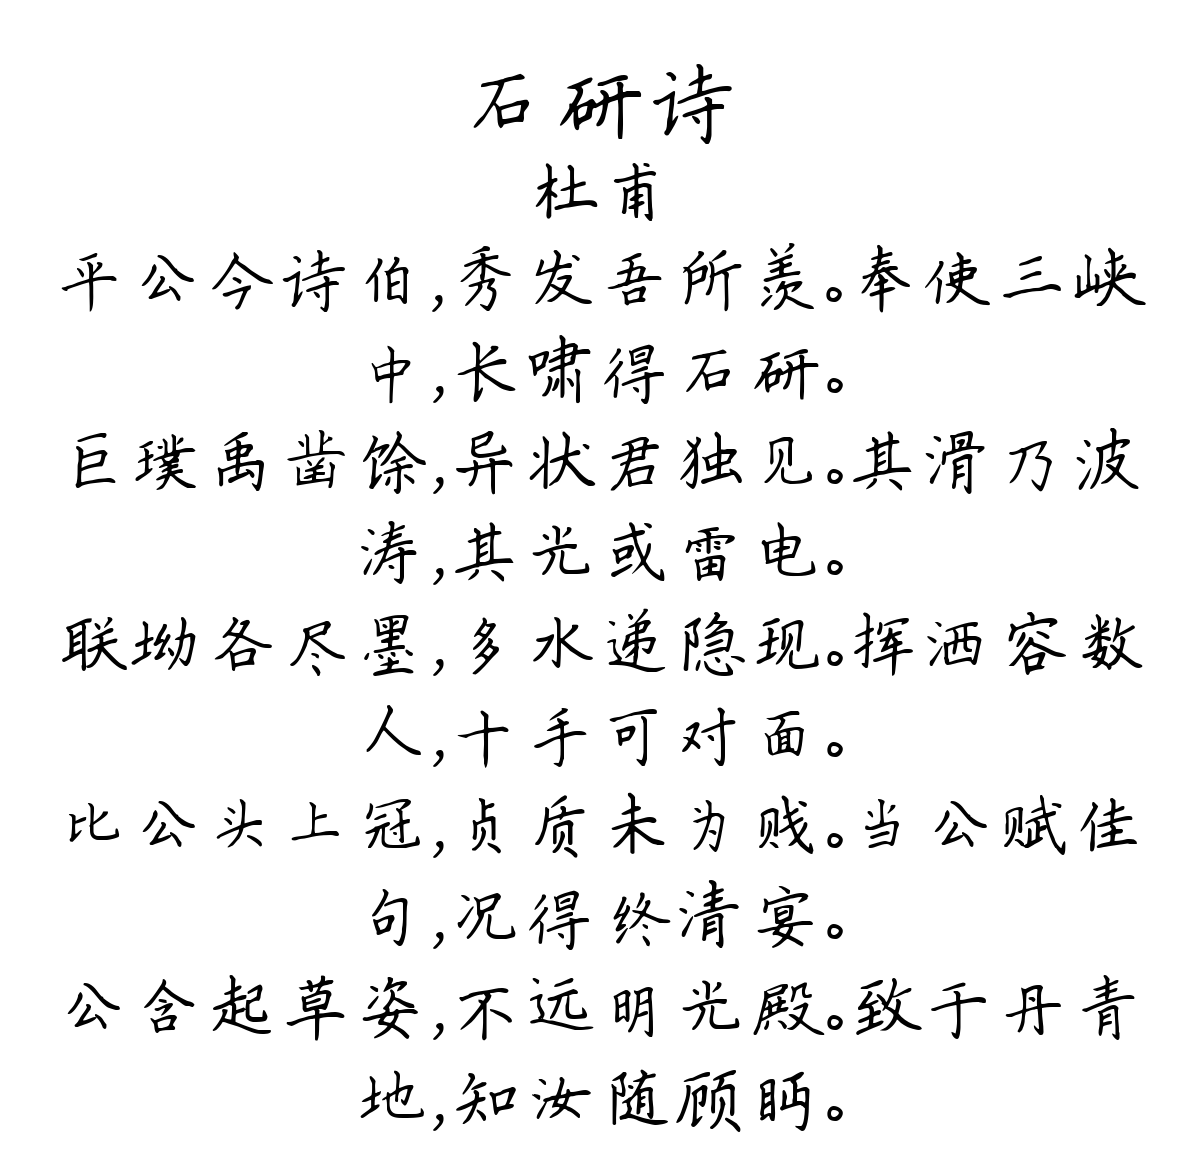 石研诗
杜甫
平公今诗伯,秀发吾所羡。奉使三峡
中,长啸得石研。
巨璞禹凿馀,异状君独见。其滑乃波
涛,其光或雷电。
联坳各尽墨,多水递隐现。挥洒容数
人,十手可对面。
比公头上冠,贞质未为贱。当公赋佳
句,况得终清宴。
公含起草姿,不远明光殿。致于丹青
地,知汝随顾眄。